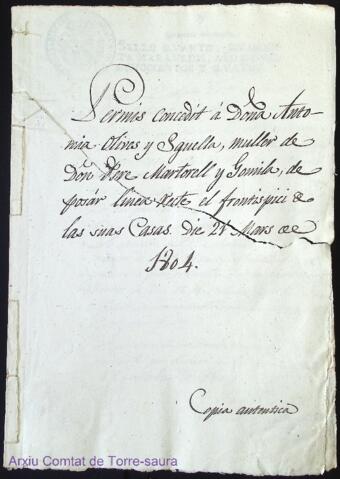 Permis concedit á Doña Anto-
nia Olives y Squella, muller de
Dōn Pere Martorell y Gomila, de
posár linea recte el frontispici de
las suas Casas. die 21 Mars de
1804.
Copia autentica
Arxiu Comtat de Torre-saura